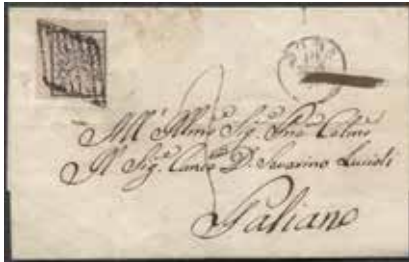 All' Illmo Sig. Pne Colmo
Il Sig. Canco D. Saverino Lucioli
Paliano